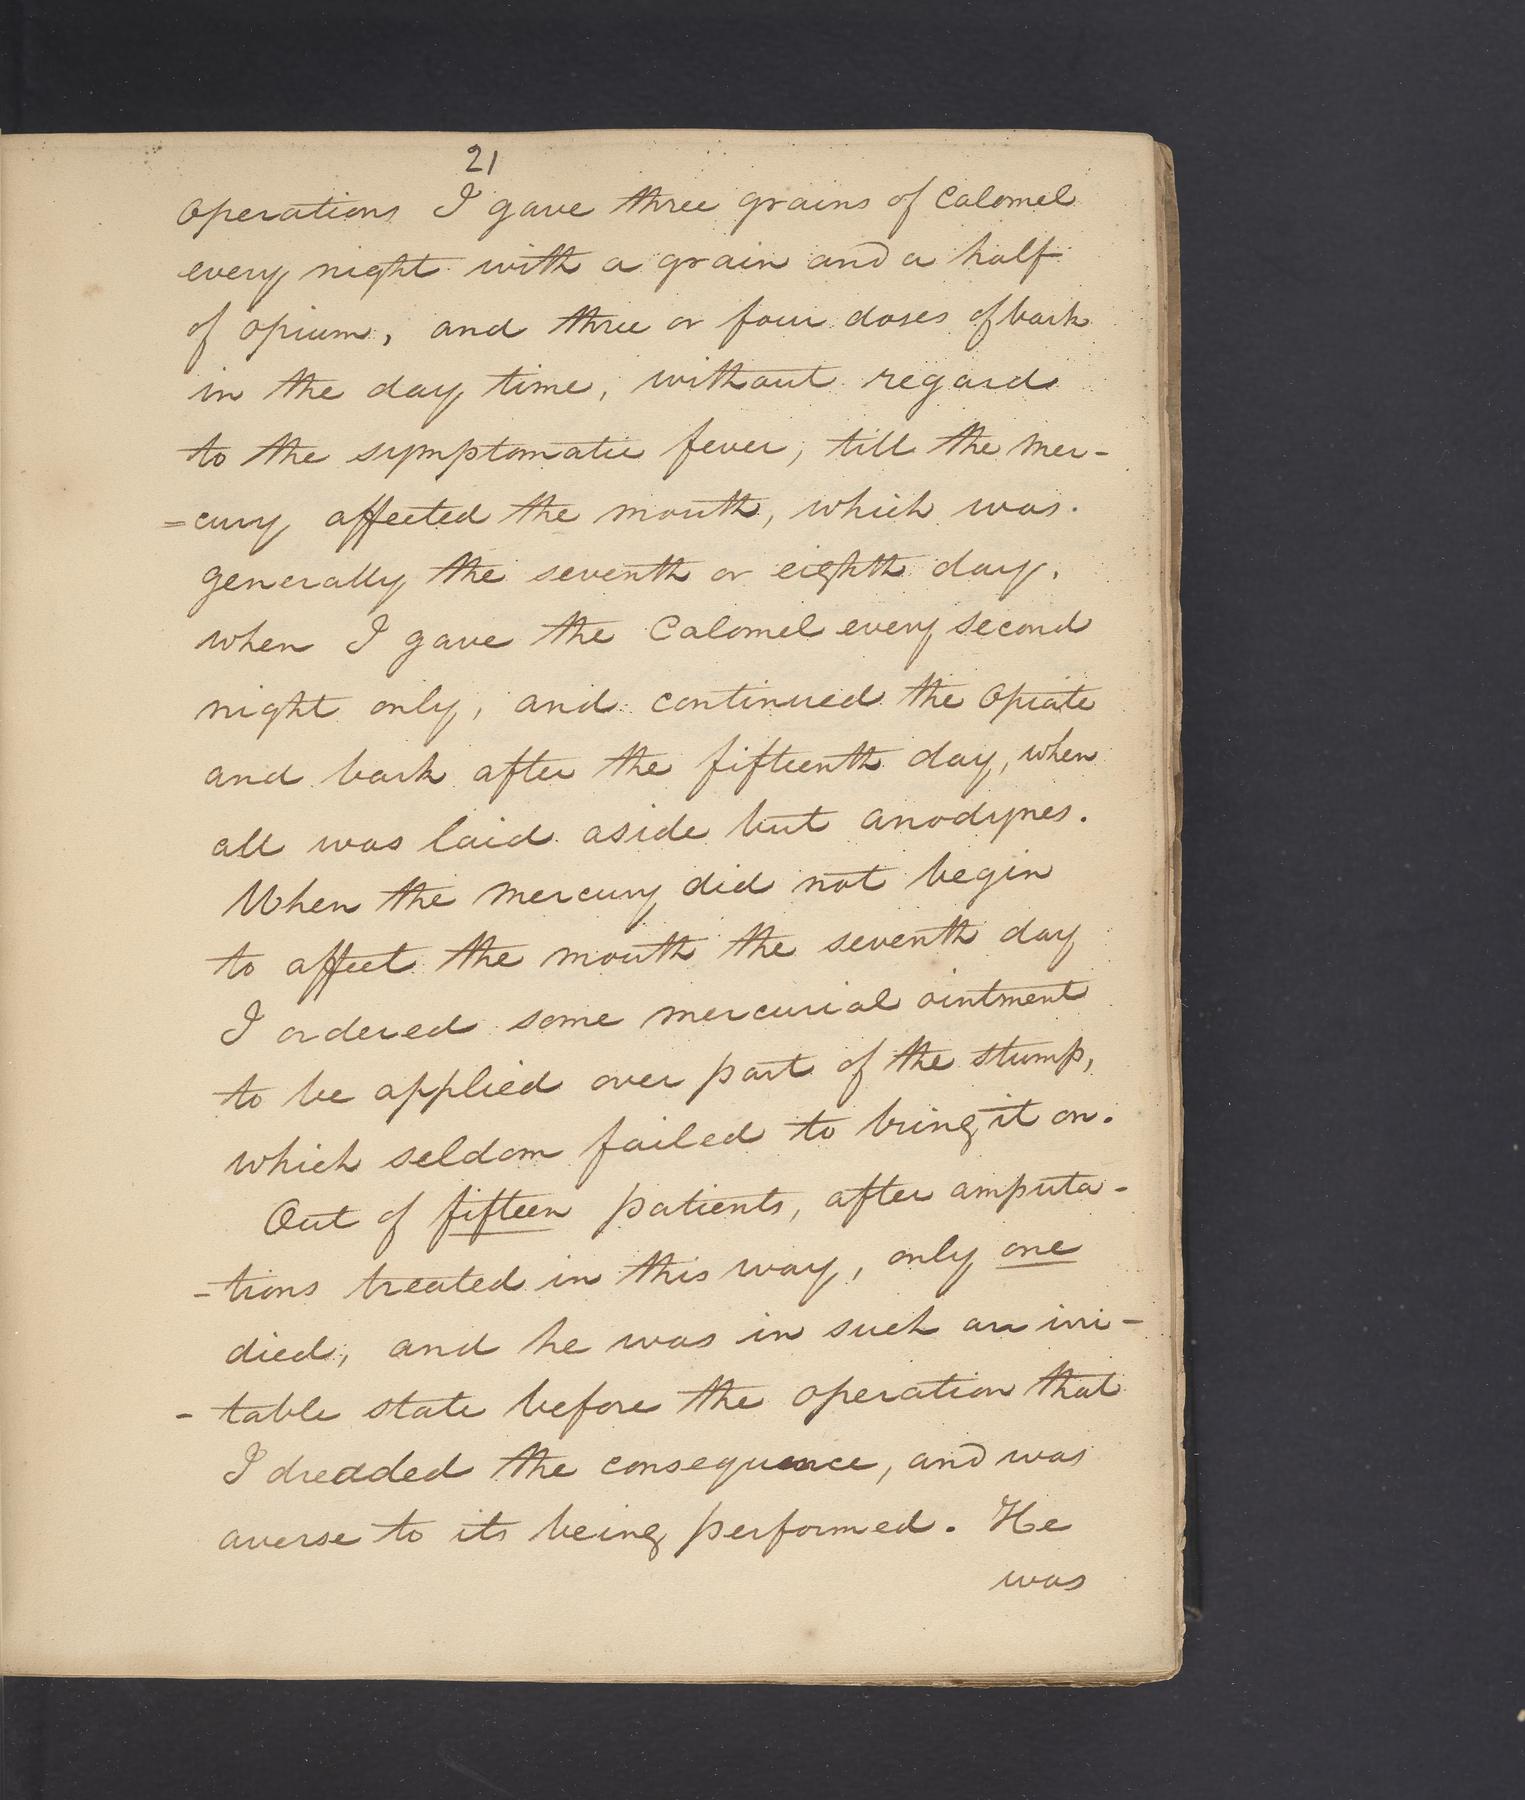 21
Operations I gave three grains of Calomel
every night with a grain and a half
of opium, and three or four doses of bark
in the day time, without regard
to the symptomatic fever, till the mer-
=cury affected the mouth, which was.
generally the seventh or eighth day,
when I gave the Calomel every second
night only, and continued the Opiate
and bark after the fifteenth day, when
all was laid aside but anodynes.
When the mercury did not begin
to affect the mouth the seventh day
I ordered some mercurial ointment
to be applied over part of the stump,
which seldom failed to bring it on.
Out of fifteen patients, after amputa-
-tions treated in this way, only one
died, and he was in such an irri-
-table state before the operation that
I dreaded the consequence, and was
averse to its being performed. He
was